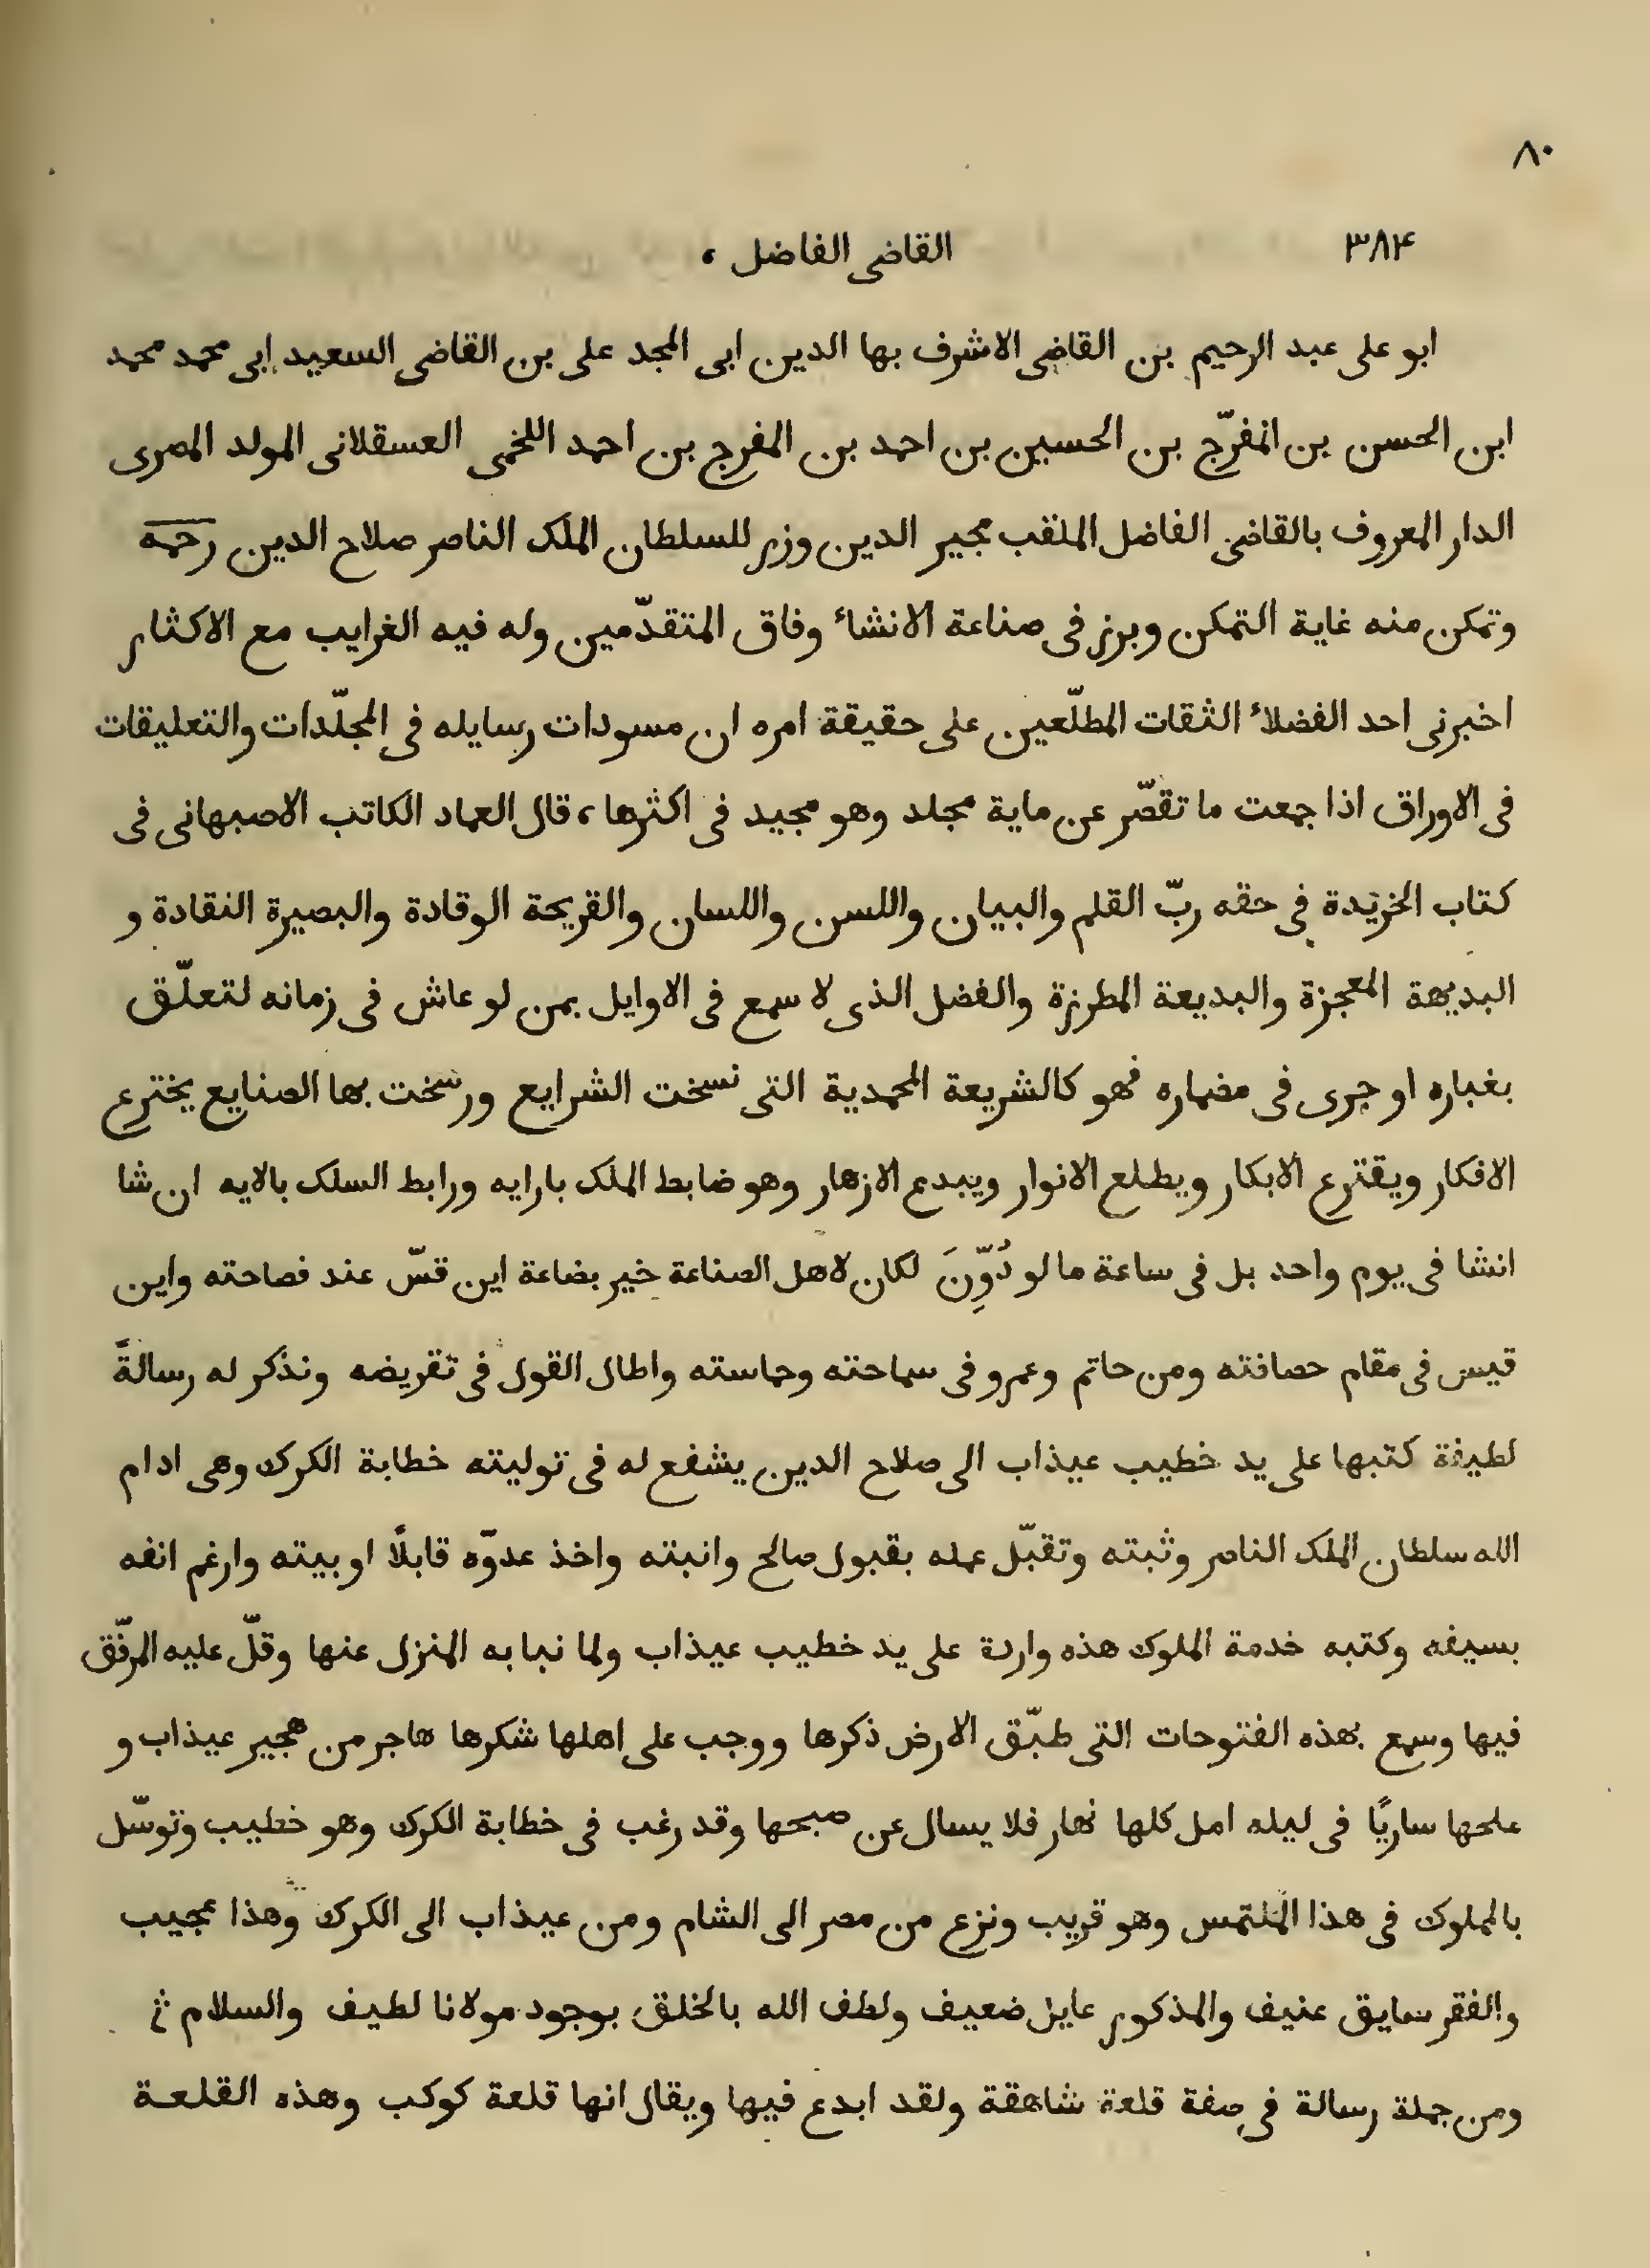 ٨٠
٣٨٤ القاضى الفاضل ،
ابو على عبد الرحيم بن القاضى الاشرف بها الدين ابى المجد على بن القاضى السعيد ابى محمد محمد
ابن الحسن بن المفرّج بن الحسين بن احمد بن المفرج بن احمد اللخمى العسقلانى المولد المصرى
الدار المعروف بالقاضى الفاضل الملقب مجير الدين وزر للسلطان الملك الناصر صلاح الدين رحمه
وتمكن منه غاية التمكن وبرز فى صناعة الانشاء وفاق المتقدّمين وله فيه الغرايب مع الاكثار
اخبرنى احد الفضلاء الثقات المطلّعين على حقيقة امره ان مسودات رسايله فى المجلّدات والتعليقات
فى الاوراق اذا جمعت ما تقصّر عن ماية مجلد وهو مجيد فى اكثرها ، قال العماد الكاتب الاصبهانى فى
كتاب الخريدة فى حقه ربّ القلم والبيان واللسن واللسان والقريحة الوقادة والبصيرة النقادة و
البديهة المعجزة والبديعة المطرزة والفضل الذى لا سمع فى الاوايل بمن لو عاش فى زمانه لتعلّق
بغباره او جرى فى مضماره فهو كالشريعة المحمدية التى نسخت الشرايع ورسخت بها الصنايع يخترع
الافكار ويقترع الابكار ويطلع الانوار ويبدع الازهار وهو ضابط الملك بارايه ورابط السلك بالايه ان شا
انشا فى يوم واحد بل فى ساعة ما لو دُوِّنَ لكان لاهل الصناعة خير بضاعة اين قسّ عند فصاحته واين
قيس فى مقام حصافته ومن حاتم وعمرو فى سماحته وحماسته واطال القول فى تقريضه ونذكر له رسالةً
لطيفة كتبها على يد خطيب عيذاب الى صلاح الدين يشفع له فى توليته خطابة الكرك وهى ادام
الله سلطان الملك الناصر وثبته وتقبّل عمله بقبول صالح وانبته واخذ عدوّه قابلًا او بيته وارغم انفه
بسيفه وكتبه خدمة الملوك هذه واردة على يد خطيب عيذاب ولما نبا به المنزل عنها وقلّ عليه المرفّق
فيها وسمع بهذه الفتوحات التى طبّق الارض ذكرها ووجب على اهلها شكرها هاجر من هجير عيذاب و
ملحها ساريًا فى ليله امل كلها نهار فلا يسال عن صبحها وقد رغب فى خطابة الكرك وهو خطيب وتوسّل
بالملوك فى هذا الملتمس وهو قريب ونزع من مصر الى الشام ومن عيذاب الى الكرك وهذا عجيب
والفقر سايق عنيف والمذكور عايل ضعيف ولطف الله بالخلق بوجود مولانا لطيف والسلام ثم
ومن جملة رسالة فى صفة قلعة شاهقة ولقد ابدع فيها ويقال انها قلعة كوكب وهذه القلعة